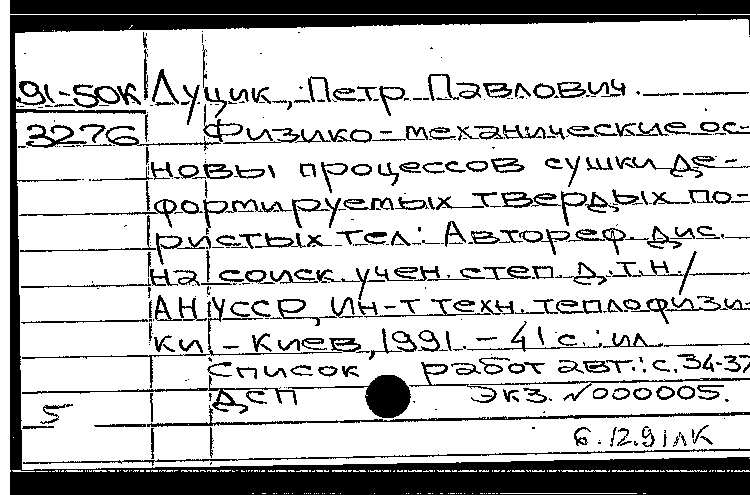 91-50К Луцик, Петр Павлович.
3276 Физико-механические ос-
новы процессов сушки де-
формируемых твердых по-
ристых тел: Автореф. дис.
на соиск. учен. степ. д.т.н./
АН УССР, Ин-т техн. теплофизи-
ки - Киев, 1991. - 41 с.: ил.
Список работ авт.: с. 34-37
ДСП Экз. №000005.
5
6.12.91 лк